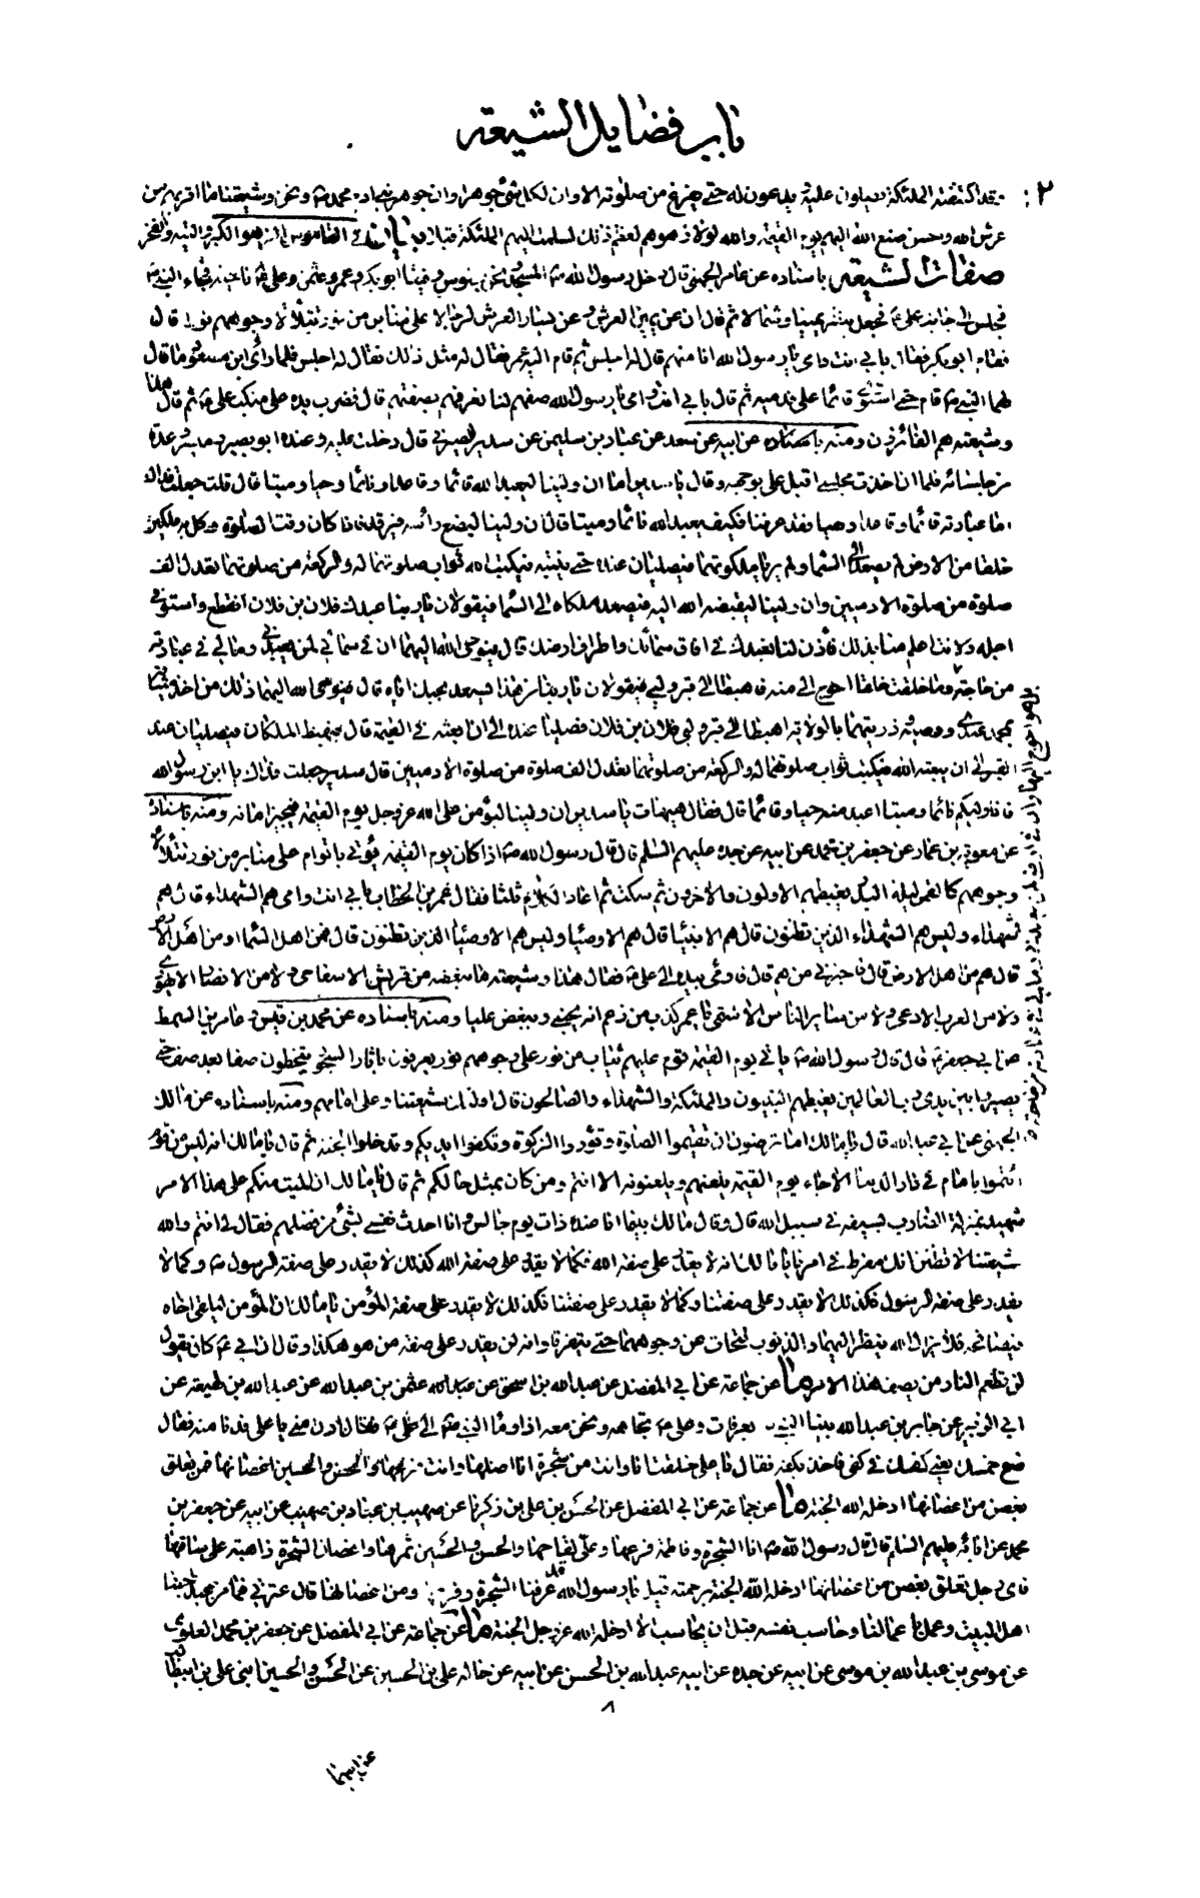 باب فضايل الشيعة
وقد اكتنفته الملئكة يصلون عليه يدعون له حتى يفرغ من صلوته الا وان لكل شئ جوهرا وان جوهر بني ادم محمد ص ونحن وشيعتنا ما اقربهم من
عرش الله وحسن صنع الله اليهم يوم القيمة والله لولا زهوهم لعظم ذلك لسلمت اليهم الملئكة قبلا بيان في القاموس الزهو الكبر والتيه والفخر
صفات الشيعة باسناده عن عامر الجهني قال دخل رسول الله ص المسجد ونحن جلوس وفينا ابو بكر وعمر وعثمن وعلي ع ناحية فجاء النبي ص
فجلس الى جانب علي ع فجعل ينظر يمينا وشمالا ثم قال ان عن يمين العرش وعن يسار العرش لرجالا على منابر من نور تتلألأ وجوههم نورا قال
فقام ابو بكر فقال بابي انت وامي يا رسول الله انا منهم قال له اجلس ثم قام اليه عمر فقال له مثل ذلك فقال له اجلس فلما رأى ابن مسعود ما قال
لهما النبي ص قام حتى استوى قائما على قدميه ثم قال بابي انت وامي يا رسول الله صفهم لنا نعرفهم بصفتهم قال فضرب يده على منكب علي ع ثم قال هذا
وشيعته هم الفائزون ومنه باسناده عن ابيه عن سعد عن عباد بن سليمن عن سدير الصيرفي قال دخلت عليه وعنده ابو بصير وميسر وعدة
من جلسائه فلما ان اخذت مجلسي اقبل علي بوجهه وقال يا سدير اما ان ولينا ليعبد الله قائما وقاعدا ونائما وحيا وميتا قال قلت جعلت فداك
اما عبادته قائما وقاعدا وحيا فقد عرفنا فكيف يعبد الله نائما وميتا قال ان ولينا ليضع رأسه فيرقد فاذا كان وقت الصلوة وكل به ملكين
خلقا من الارض لم يصعدا الى السماء ولم يريا ملكوتهما فيصليان عنده حتى ينتبه فيكتب الله ثواب صلوتهما له والركعة من صلوتهما تعدل الف
صلوة من صلوة الادميين وان ولينا ليقبضه الله اليه فيصعد ملكاه الى السماء فيقولان يا ربنا عبدك فلان بن فلان انقطع واستوفى
اجله ولانت اعلم منا بذلك فأذن لنا نعبدك في افاق سمائك واطراف ارضك قال فيوحي الله اليهما ان في سمائي لمن يعبدني ومالي في عبادته
من حاجة وما خلقت خلقا احوج الى منه فاهبطا الى قبر وليي فيقولان يا ربنا من هذا يسعد بحبك اياه قال فيوحي الله اليهما ذلك من اخذ ميثاقه
بمحمد عبدي ووصيه وذريتهما بالولاية اهبطا الى قبر وليي فلان بن فلان فصليا عنده الى ان ابعثه في القيمة قال فيهبط الملكان فيصليان عند
القبر الى ان يبعثه الله فيكتب ثواب صلوتهما له والركعة من صلوتهما تعدل الف صلوة من صلوة الادميين قال سدير جعلت فداك يا ابن رسول الله
فاذا وليكم نائما وميتا اعبد منه حيا وقائما قال فقال هيهات يا سدير ان ولينا ليؤمن على الله عز وجل يوم القيمة فيجيز امانه ومنه باسناده
عن معوية بن عمار عن جعفر بن محمد عن ابيه عن جده عليهم السلم قال قال رسول الله ص اذا كان يوم القيمة يؤتى باقوام على منابر من نور تتلألأ
وجوههم كالقمر ليلة البدر يغبطهم الاولون والاخرون ثم سكت ثم اعاد الكلام ثلثا فقال عمر بن الخطاب بابي انت وامي هم الشهداء قال هم
شهداء وليس هم الشهداء الذين تظنون قال هم الانبياء قال هم الاوصياء وليس هم الاوصياء الذين تظنون قال فمن اهل السماء او من اهل الارض
قال هم من اهل الارض قال فاخبرني من هم قال فاومى بيده الى علي ع فقال هذا وشيعته ما يبغضه من قريش الا سفاحي ولا من الانصار الا يهودي
ولا من العرب الا دعي ولا من سائر الناس الا شقي يا عمر كذب من زعم انه يحبني ويبغض عليا ومنه باسناده عن محمد بن قيس وعامر بن السمط
عن ابي جعفر ع قال قال رسول الله ص ياتي يوم القيمة قوم عليهم ثياب من نور على وجوههم نور يعرفون باثار السجود يتخطون صفا بعد صف حتى
يصيروا بين يدي رب العالمين يغبطهم النبيون والملئكة والشهداء والصالحون قال اولئك شيعتنا وعلى امامهم ومنه باسناده عن مالك
الجهني عن ابي عبد الله قال يا مالك اما ترضون ان تقيموا الصلوة وتؤدوا الزكوة وتكفوا ايديكم وتدخلوا الجنة ثم قال يا مالك انه ليس من قوم
ائتموا بامام في دار الدنيا الا جاء يوم القيمة يلعنهم ويلعنونه الا انتم ومن كان بمثل حالكم ثم قال يا مالك ان الميت منكم على هذا الامر
شهيد بمنزلة الضارب بسيفه في سبيل الله قال وقال مالك بينما انا عنده ذات يوم جالس وانا احدث نفسي بشئ من فضلهم فقال لي انتم والله
شيعتنا لا تظنن انك مفرط في امرنا يا مالك انه لا يقدر على صفة الله فكما لا يقدر على صفة الله كذلك لا يقدر على صفة الرسول ص وكما لا
يقدر على صفة الرسول فكذلك لا يقدر على صفتنا وكما لا يقدر على صفتنا فكذلك لا يقدر على صفة المؤمن يا مالك ان المؤمن ليلقى اخاه
فيصافحه فلا يزال الله ينظر اليهما والذنوب تتحات عن وجوههما حتى يتفرقا وانه لن يقدر على صفة من هو هكذا وقال ان ابي ع كان يقول
لن تطعم النار من يصف هذا الامر ما عن جماعة عن ابي المفضل عن عبد الله بن اسحق عن عثمن بن عبد الله عن عبد الله بن لهيعة عن
ابي الزبير عن جابر بن عبد الله بينا النبي ص بعرفات وعلي ع تجاهه ونحن معه اذ اومأ النبي ص الى علي ع فقال ادن مني يا علي فدنا منه فقال
ضع خمسك يعني كفك في كفي فاخذ بكفه فقال يا علي خلقت انا وانت من شجرة انا اصلها وانت فرعها والحسن والحسين اغصانها فمن تعلق
بغصن من اغصانها ادخله الله الجنة ما عن جماعة عن ابي المفضل عن الحسن بن علي بن زكريا عن صهيب بن عباد بن صهيب عن ابيه عن جعفر بن
محمد عن ابائه عليهم السلم قال قال رسول الله ص انا الشجرة وفاطمة فرعها وعلي لقاحها والحسن والحسين ثمرها واغصان الشجرة ذاهبة على ساقها
فاي رجل تعلق بغصن من اغصانها ادخله الله الجنة برحمته قيل يا رسول الله قد عرفنا الشجرة وفرعها ومن اغصانها قال عترتي فما من عبد احبنا
اهل البيت وعمل باعمالنا وحاسب نفسه قبل ان يحاسب الا ادخله الله عز وجل الجنة ما عن جماعة عن ابي المفضل عن جعفر بن محمد العلوي
عن موسى بن عبد الله بن موسى عن ابيه عن جده عن ابيه عبد الله بن الحسن عن ابيه عن خاله علي بن الحسين عن الحسن والحسين ابني علي بن ابيطالب
٨
عن ابيهما